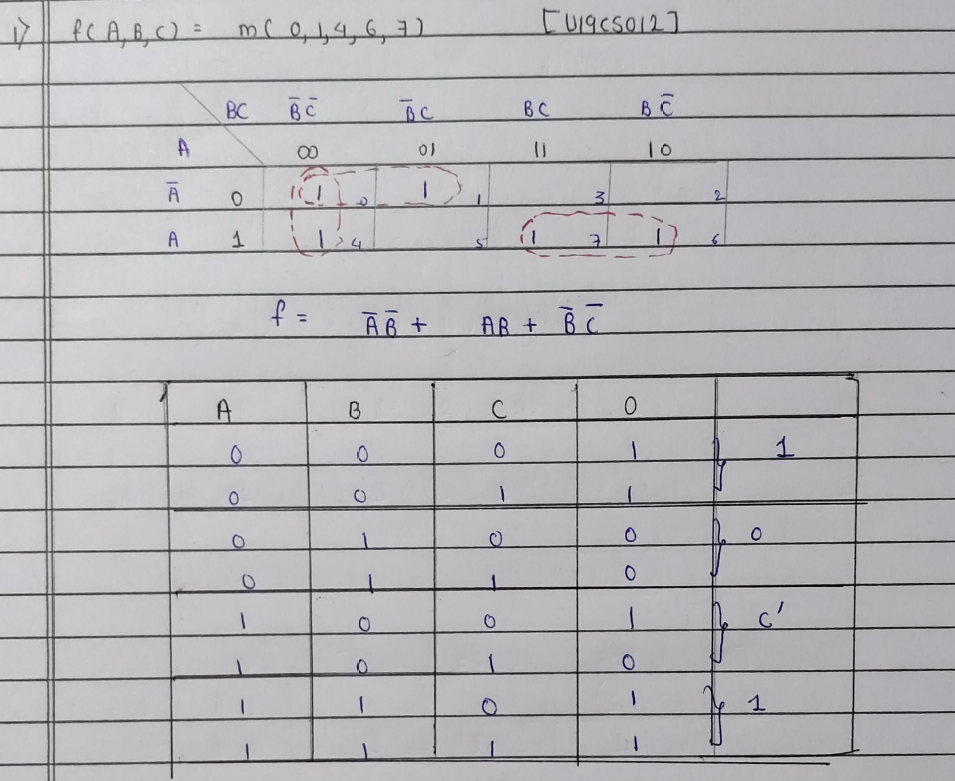 1) f(A,B,C) = m( 0,1,4,6,7) [U19CS012]
BC B̅C̅ B̅C BC BC̅
A 00 01 11 10
A̅ 0 1 0 1 1 3 2
A 1 1 4 5 1 7 1 6
f = A̅B̅ + AB + B̅C̅
A B C O
0 0 0 1 1
0 0 1 1
0 1 0 0 0
0 1 1 0
1 0 0 1 C'
1 0 1 0
1 1 0 1 1
1 1 1 1